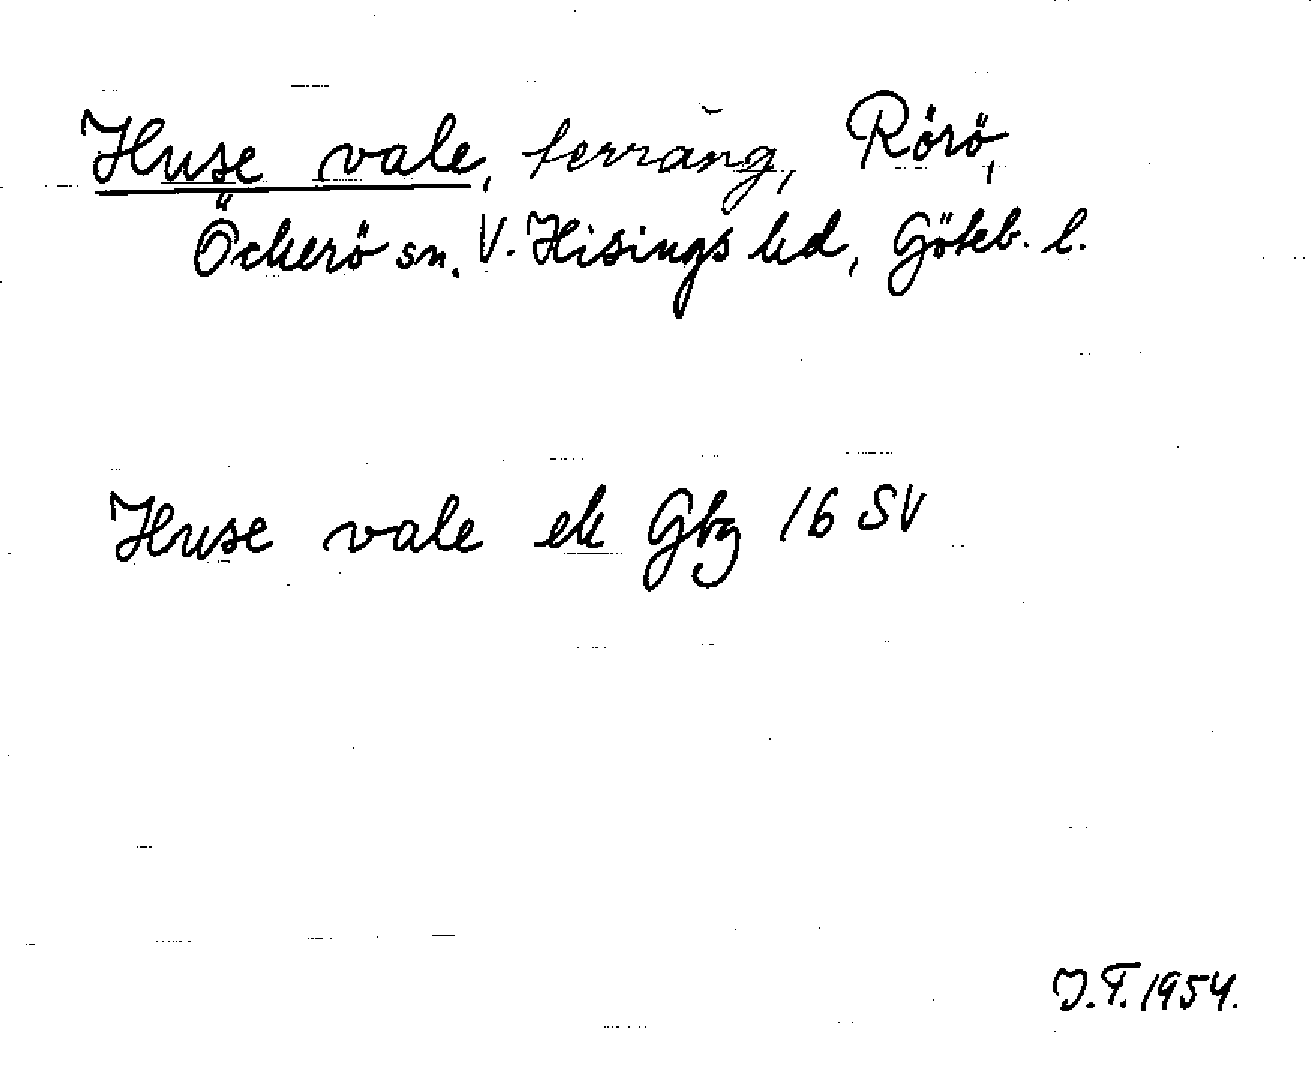 Huse vale, terräng, Rörö,
Öckerö sn. V. Hisings hd, Göteb. l.
Huse vale ek Gbg 16 SV
J.T. 1954.